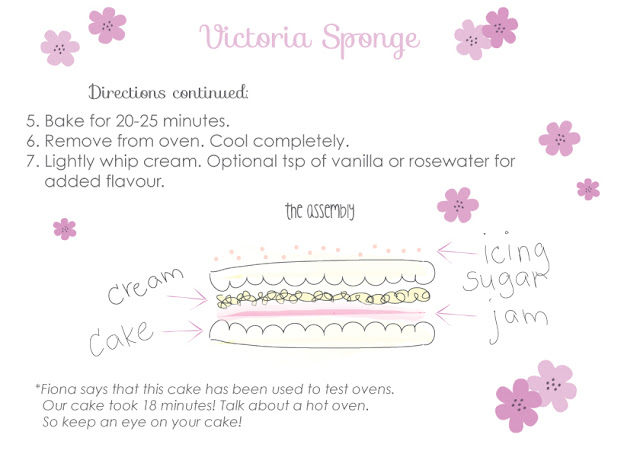 Victoria Sponge
Directions continued:
5. Bake for 20-25 minutes.
6. Remove from oven. Cool completely.
7. Lightly whip cream. Optional tsp of vanilla or rosewater for
added flavour.
the assembly
icing
sugar
cream
jam
cake
*Fiona says that this cake has been used to test ovens.
Our cake took 18 minutes! Talk about a hot oven.
So keep an eye on your cake!